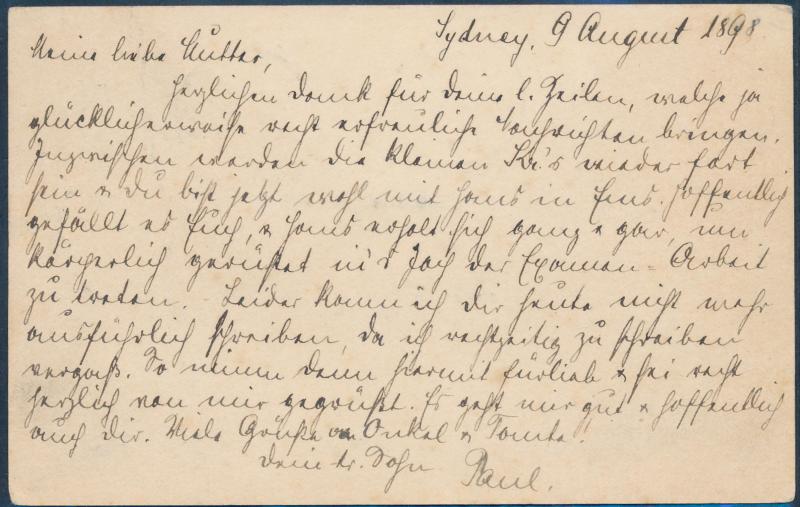 Sydney, 9 August 1898
Meine liebe Mutter,
herzlichen Dank für deine l. Zeilen, welche ja
glücklicherweise recht erfreuliche Nachrichten bringen.
Inzwischen werden die kleinen Kr.'s wieder fort
sein & du bist jetzt wohl mit Hans in Ems. Hoffentlich
gefällt es Euch, & Hans erholt sich ganz & gar, um
körperlich gerüstet in's Joch der Examen-Arbeit
zu treten. Leider kann ich dir heute nicht mehr
ausführlich schreiben, da ich rechtzeitig zu schreiben
vergaß. So nimm denn hiermit fürlieb & sei recht
herzlich von mir gegrüßt. Es geht mir gut & hoffentlich
auch dir. Viele Grüße an Onkel & Tante.
dein tr. Sohn Paul.